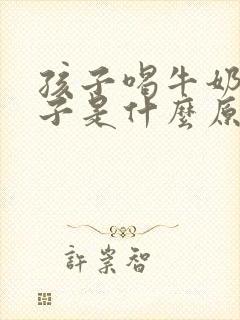 孩子喝牛奶
子是什麼原
許崇智